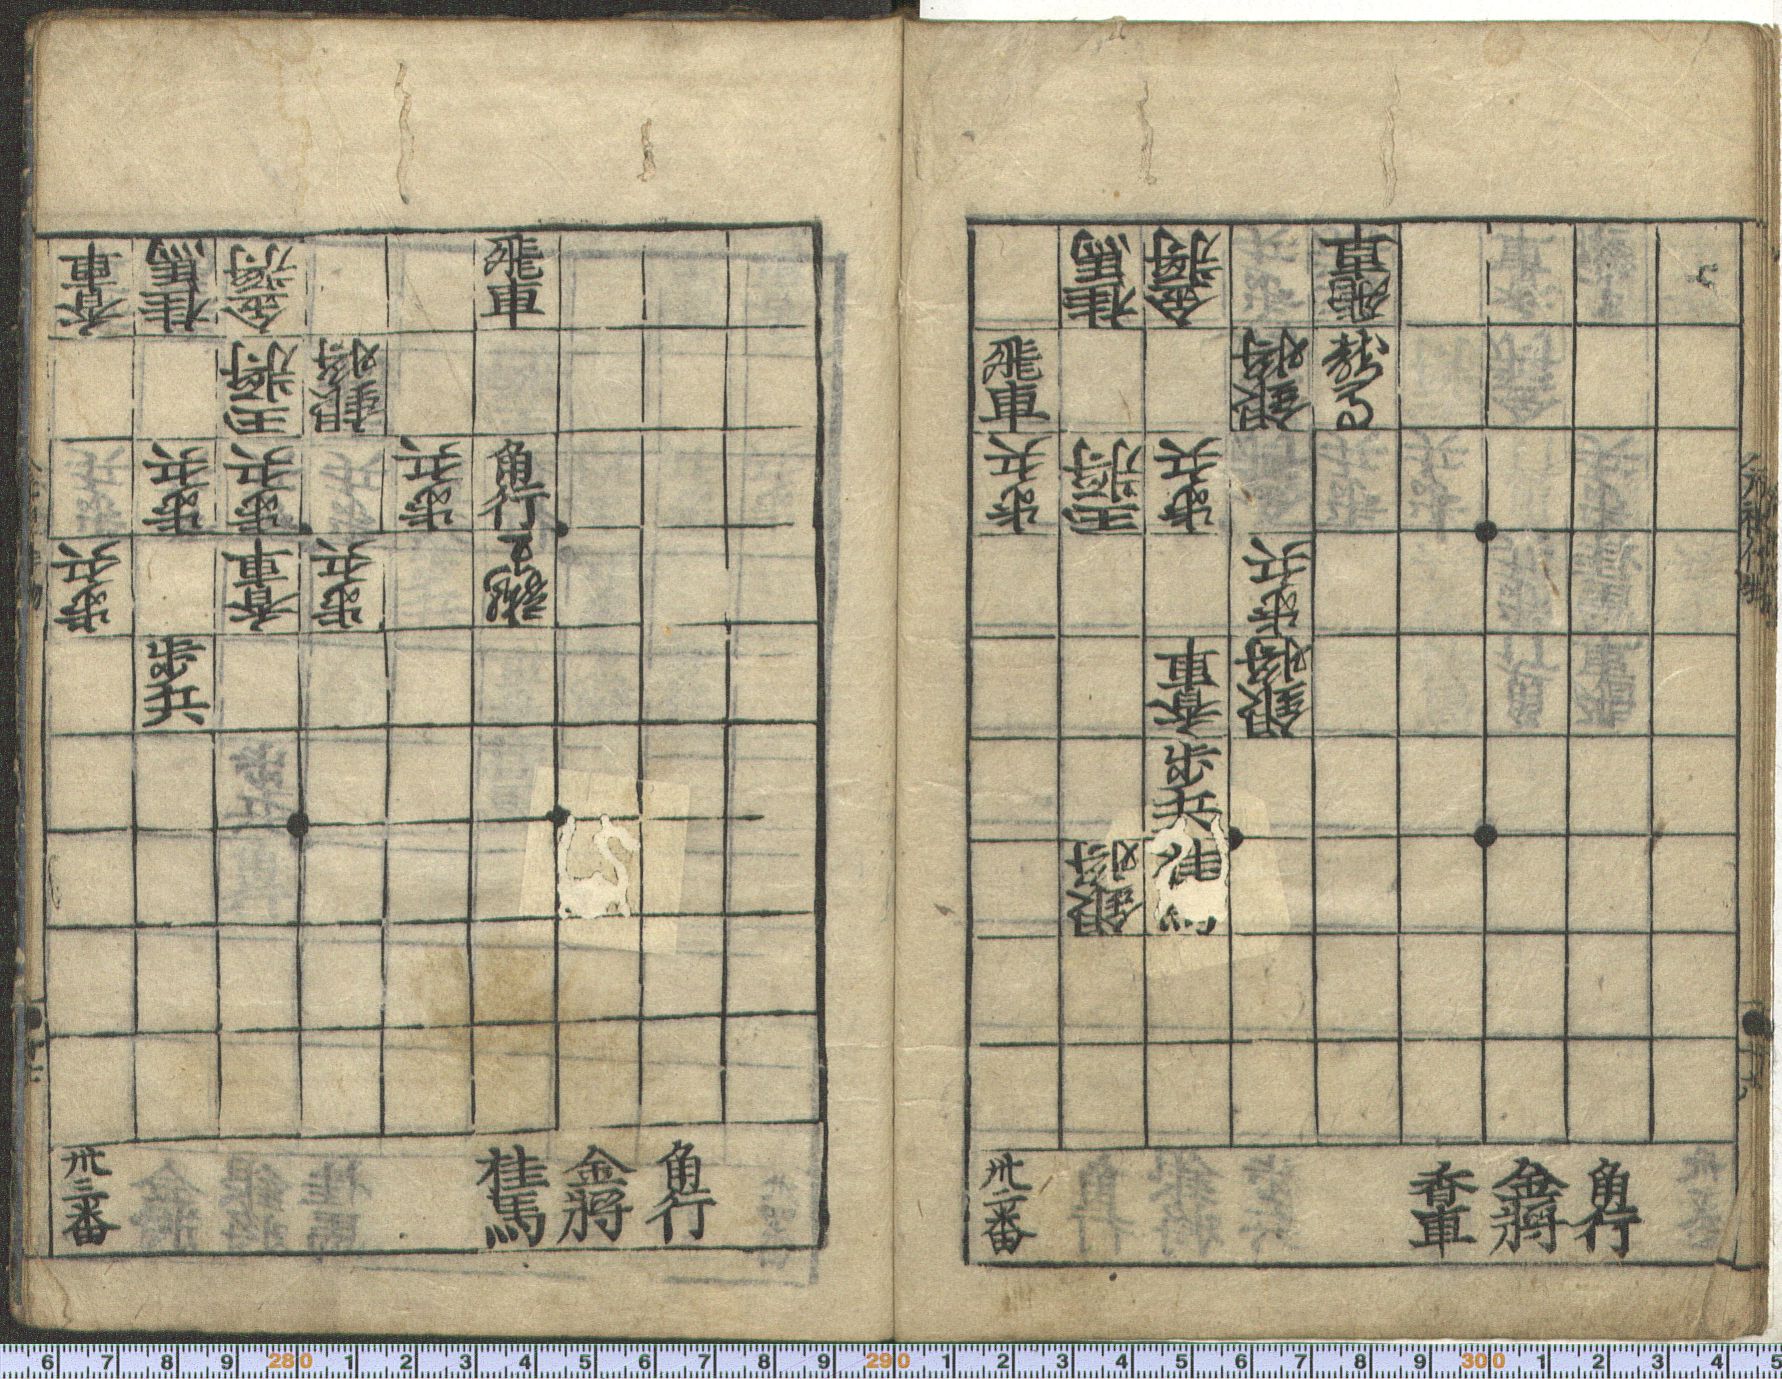 桂馬 金將 飛車
飛車 銀將
歩兵 玉將 歩兵
歩兵
香車 銀將
歩兵
銀將
卅二番 香車 金將 角行
香車 桂馬 金將 飛車
玉將 銀將
歩兵 歩兵 歩兵 角行
歩兵 香車 歩兵
歩兵
卅三番 桂馬 金將 角行